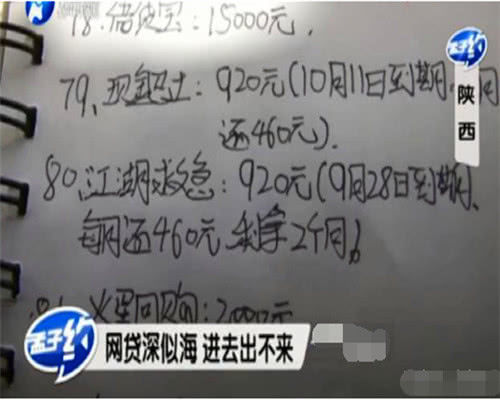 78.借贷宝:15000元,
79、现金巴士:920元(10月11日到期,
还460元).
80、江湖救急:920元(9月28日到期、
每月还460元,剩余2个月)
火星回购:2000元
孟子约
陕西
孟子约
网贷深似海 进去出不来